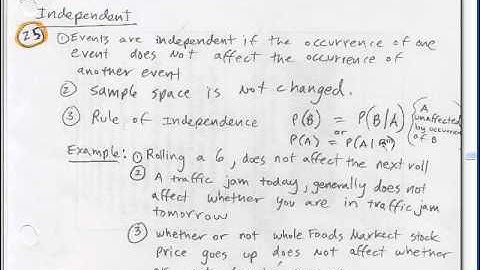 Independent
25
① Events are independent if the occurrence of one
event does NOT affect the occurrence of
another event
② Sample space is NOT changed.
③ Rule of Independence P(B) = P(B|A) { A unaffected by occurrence of B
or
P(A) = P(A|B)
Example: ① Rolling a 6, does not affect the next roll
② A traffic jam today, generally does not
affect whether you are in traffic jam
tomorrow
③ whether or not whole Foods Market stock
Price goes up does not affect whether